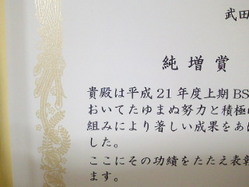 武田
純増賞
貴殿は平成21年度上期BS
おいてたゆまぬ努力と積極
組みにより著しい成果をあ
した。
ここにその功績をたたえ表彰
ます。